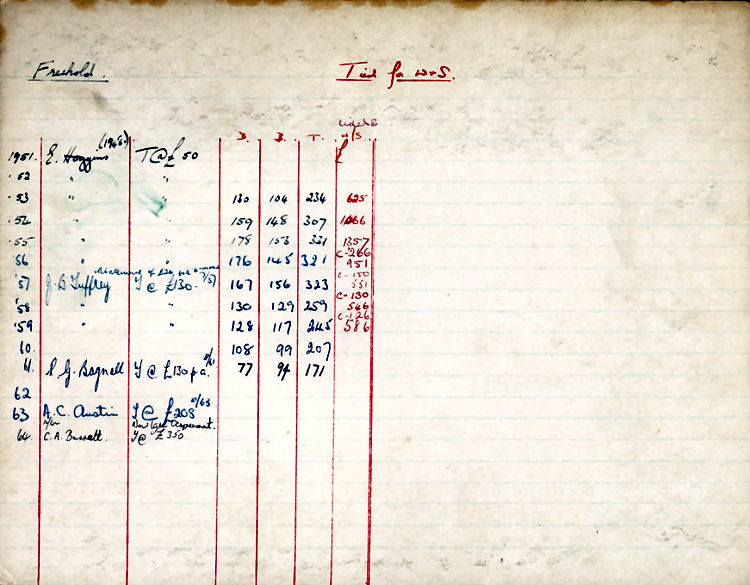 Freehold. Tied for W+S.
B. B. T. W/S.
(1948)
1951. E. Hoggins T@£50 £
.52 " "
.53 " " 130 104 234 625
.54 " " 159 148 307 1066
.55 " " 178 153 331 1357
C-266
'56 " " 176 145 321 951
7/57 C-150
'57 J.D. Tuffley T @ £130. 167 156 323 551
C-130
'58 " " 130 129 259 546
C-126
'59 " " 128 117 245 586
60. 108 99 207
61. S.G. Bagnall T @ £130 p.a. 77 94 171
62
63 A.C. Austin T @ £208
New Agreement.
64. C.A. Bassett. T @ £350.